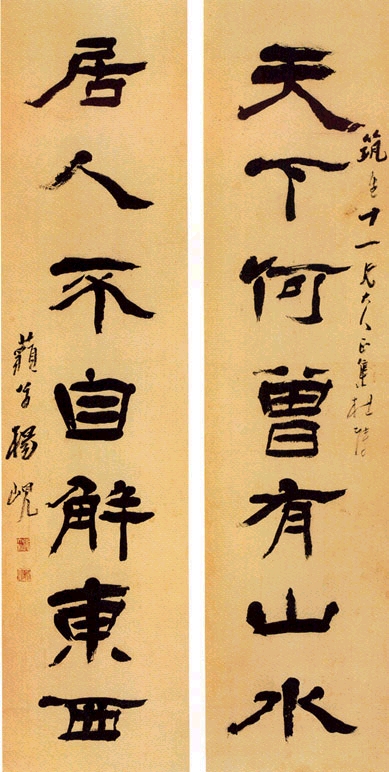 筑十一兄大人正集杜陵
天下何曾有山水
居人不自解東西
藐翁楊峴